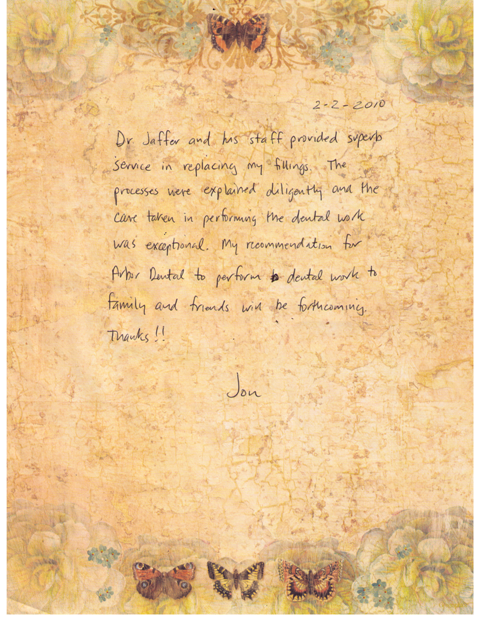 2-2-2010
Dr. Jaffer and his staff provided superb
service in replacing my fillings. The
processes were explained diligently and the
care taken in performing the dental work
was exceptional. My recommendation for
Arbor Dental to perform dental work to
family and friends will be forthcoming.
Thanks!!
Jon